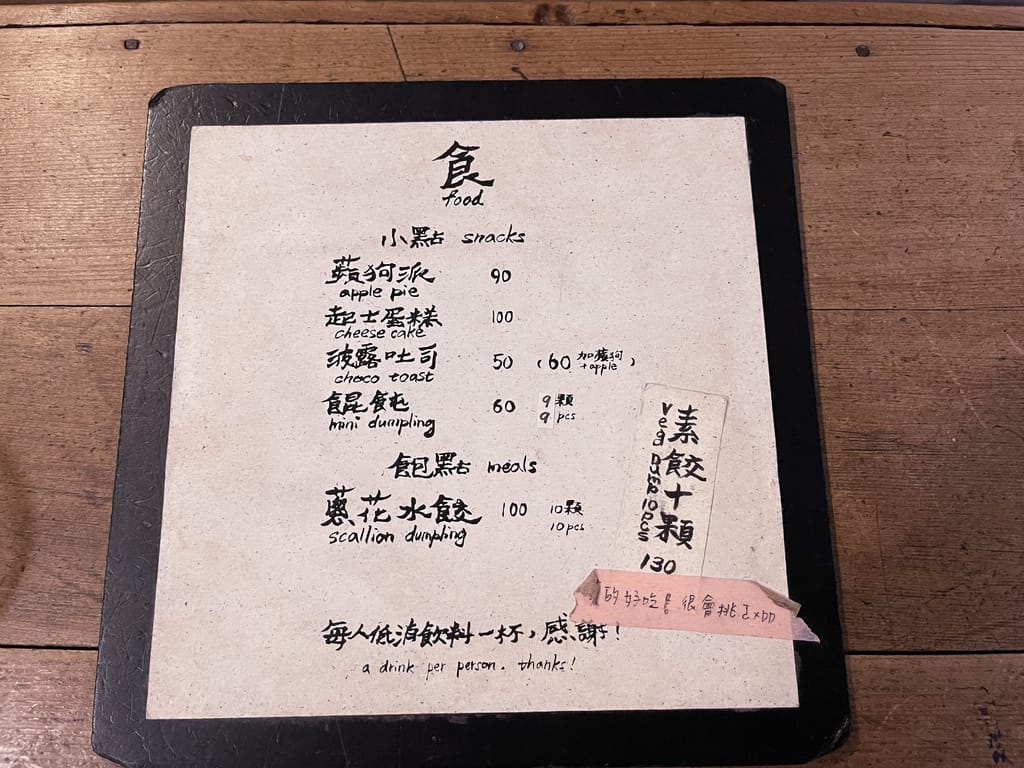 食
food
小點 snacks
蘋狗派 90
apple pie
起士蛋糕 100
cheese cake
波露吐司 50 (60 加蘋狗 +apple)
choco toast
餛飩 60 9顆
mini dumpling 9 pcs
飽點 meals
蔥花水餃 100 10顆
scallion dumpling 10 pcs
素餃十顆
veg 10 pcs
130
的好吃! 很會挑
每人低消飲料一杯,感謝!
a drink per person. thanks!